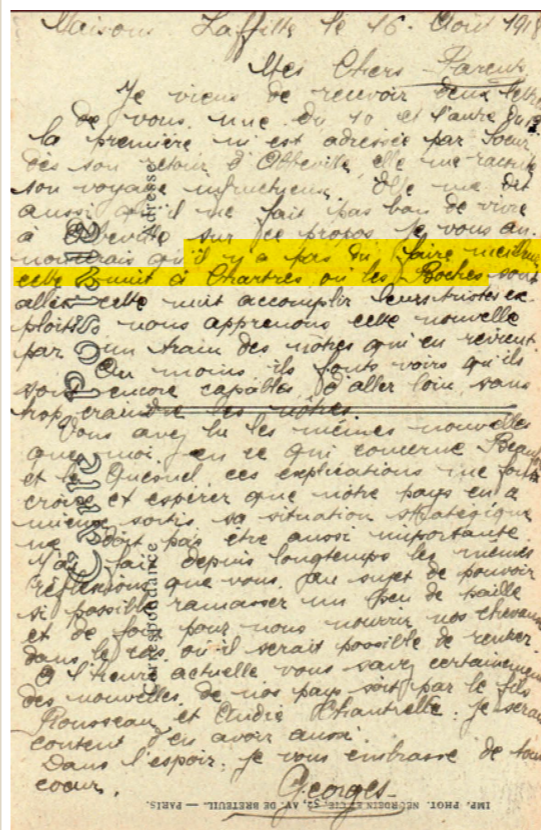 Maisons Laffitte le 16 Août 1918
Mes Chers Parents
Je viens de recevoir deux lettres
de vous une du 10 et l'autre du
la première m'est adressée par Soeur
dès son retour d'Abbeville, elle me raconte
son voyage infructueux. Elle me dit
aussi qu'il ne fait pas bon de vivre
à Abbeville sur ce propos je vous an
noncerais qu'il y a pas du faire meilleur
cette nuit à Chartres où les Boches sont
allés cette nuit accomplir leurs tristes ex
ploits nous apprenons cette nouvelle
par un train des nôtres qui en revient.
Au moins ils fonts voirs qu'ils
sont encore capables d'aller loin sans
trop craindre les nôtres.
Vous avez lu les mêmes nouvelles
que moi en ce qui concerne
et le Quesnel ces explications me font
croire et espérer que nôtre pays en a
mieux sortis sa situation stratégique
ne doit pas être aussi importante
J'ai fait depuis longtemps les mêmes
réflexions que vous au sujet de pouvoir
si possible ramasser un peu de paille
et de foin pour nous nourrir nos chevaux
dans le cas où il serait possible de rentrer
A l'heure actuelle vous savez certainement
des nouvelles de nos pays soit par le fils
Rousseau et André Chantrelle; je serai
content d'en avoir aussi.
Dans l'espoir je vous embrasse de tout
coeur.
Georges
Carte postale
Correspondance
Adresse
IMP. PHOT. NEURDEIN ET CIE, 52, AV. DE BRETEUIL. — PARIS.